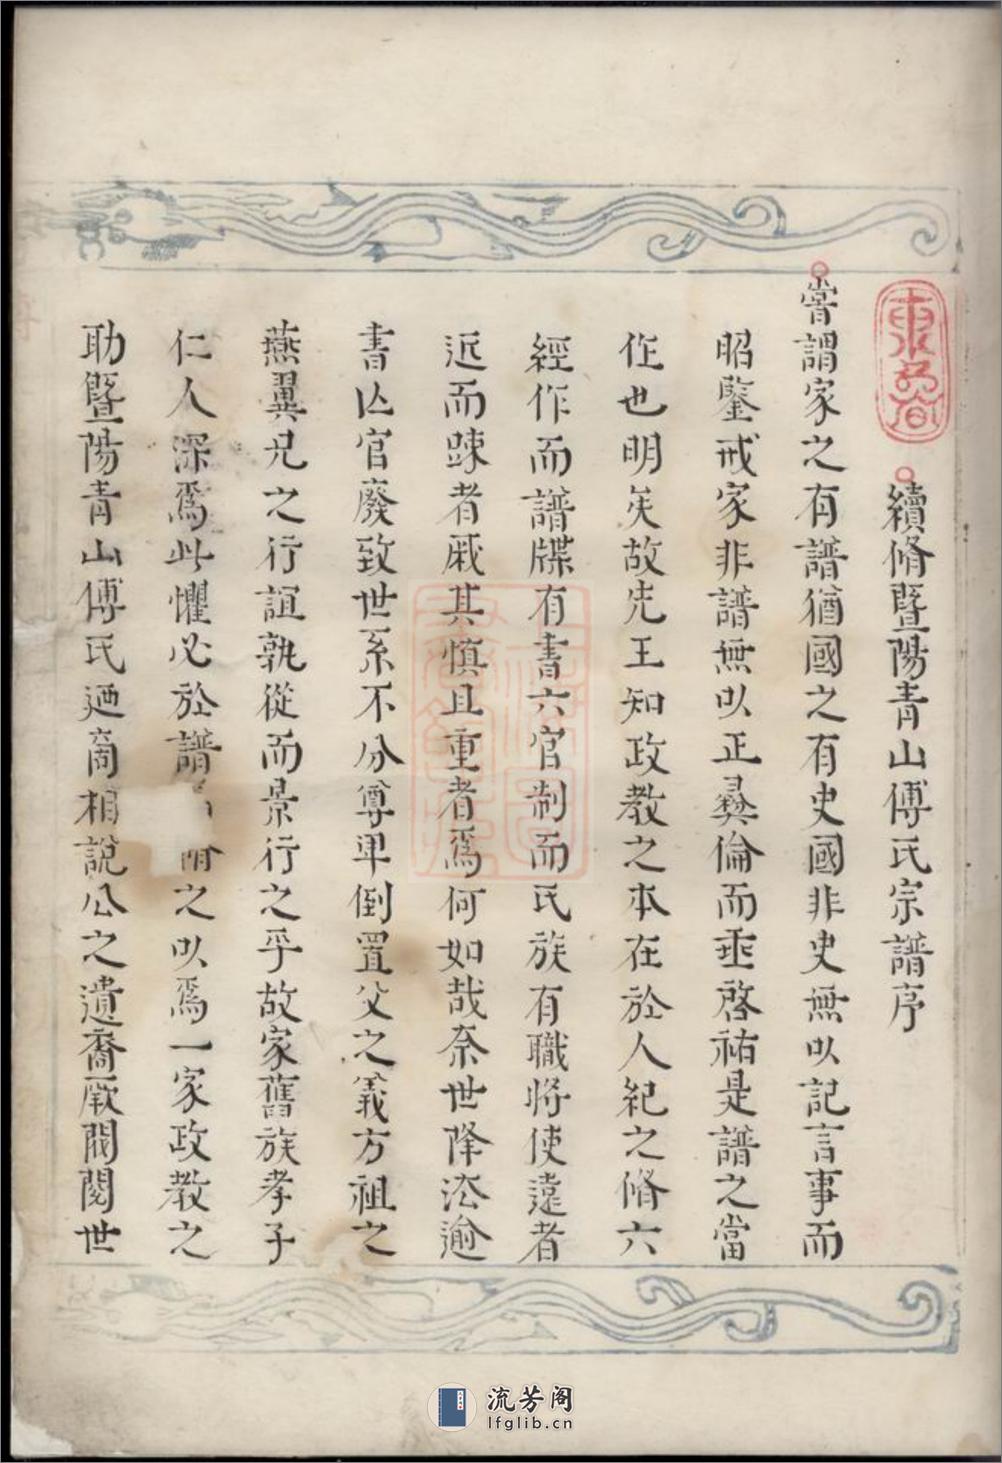 續脩暨陽青山傅氏宗譜序
嘗謂家之有譜猶國之有史國非史無以記言事而
昭鑒戒家非譜無以正彛倫而垂啓祐是譜之當
作也明矣故先王知政教之本在於人紀之脩六
經作而譜牒有書六官制而氏族有職將使遠者
近而踈者戚其慎且重者爲何如哉奈世降汯逾
書亾官廢致世系不分尊卑倒置父之義方祖之
燕翼兄之行誼孰從而景行之乎故家舊族孝子
仁人深爲此懼必於譜之以爲一家政教之
助暨陽青山傅氏廼商相說公之遺裔厥閥閱世
流芳阁
lfglib.cn